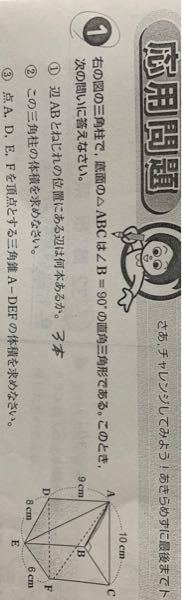 応用問題
さあ，チャレンジしてみよう！あきらめずに最後までト
1
右の図の三角柱で，底面の△ABCは∠B＝90°の直角三角形である。このとき，
次の問いに答えなさい。
① 辺ABとねじれの位置にある辺は何本あるか。 3本
② この三角柱の体積を求めなさい。
③ 点A，D，E，Fを頂点とする三角錐A－DEFの体積を求めなさい。
10cm
A
C
B
9cm
D
F
8cm
6cm
E